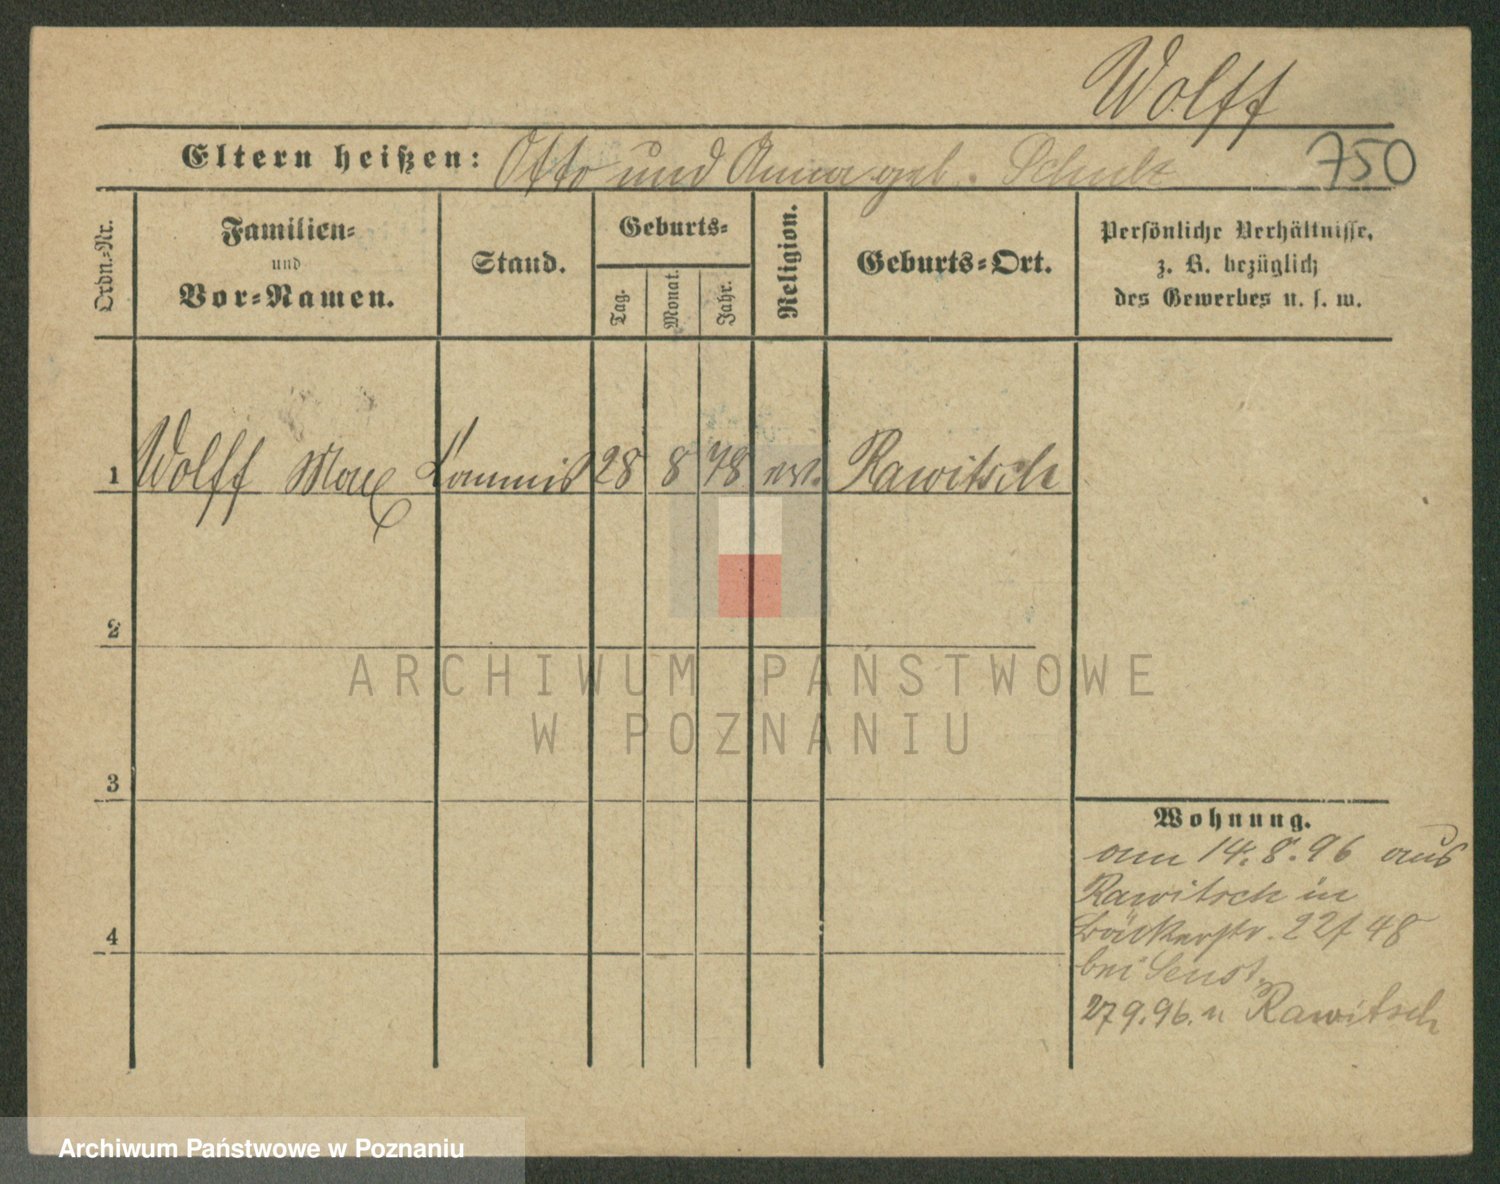 Wolff
Eltern heißen: Otto und Anna geb. Schulz
750
Ordn.-Nr.
Familien-
und
Vor-Namen.
Stand.
Geburts-
Tag.
Monat.
Jahr.
Religion.
Geburts-Ort.
Persönliche Verhältnisse,
z. B. bezüglich
des Gewerbes u. s. w.
1 Wolff Max Commis 28 8 78 ev. Rawitsch
2
3
4
ARCHIWUM PAŃSTWOWE
W POZNANIU
Wohnung.
am 14.8.96 aus
Rawitsch in
Bäckerstr. 22 48
bei
27 9.96. n Rawitsch
Archiwum Państwowe w Poznaniu